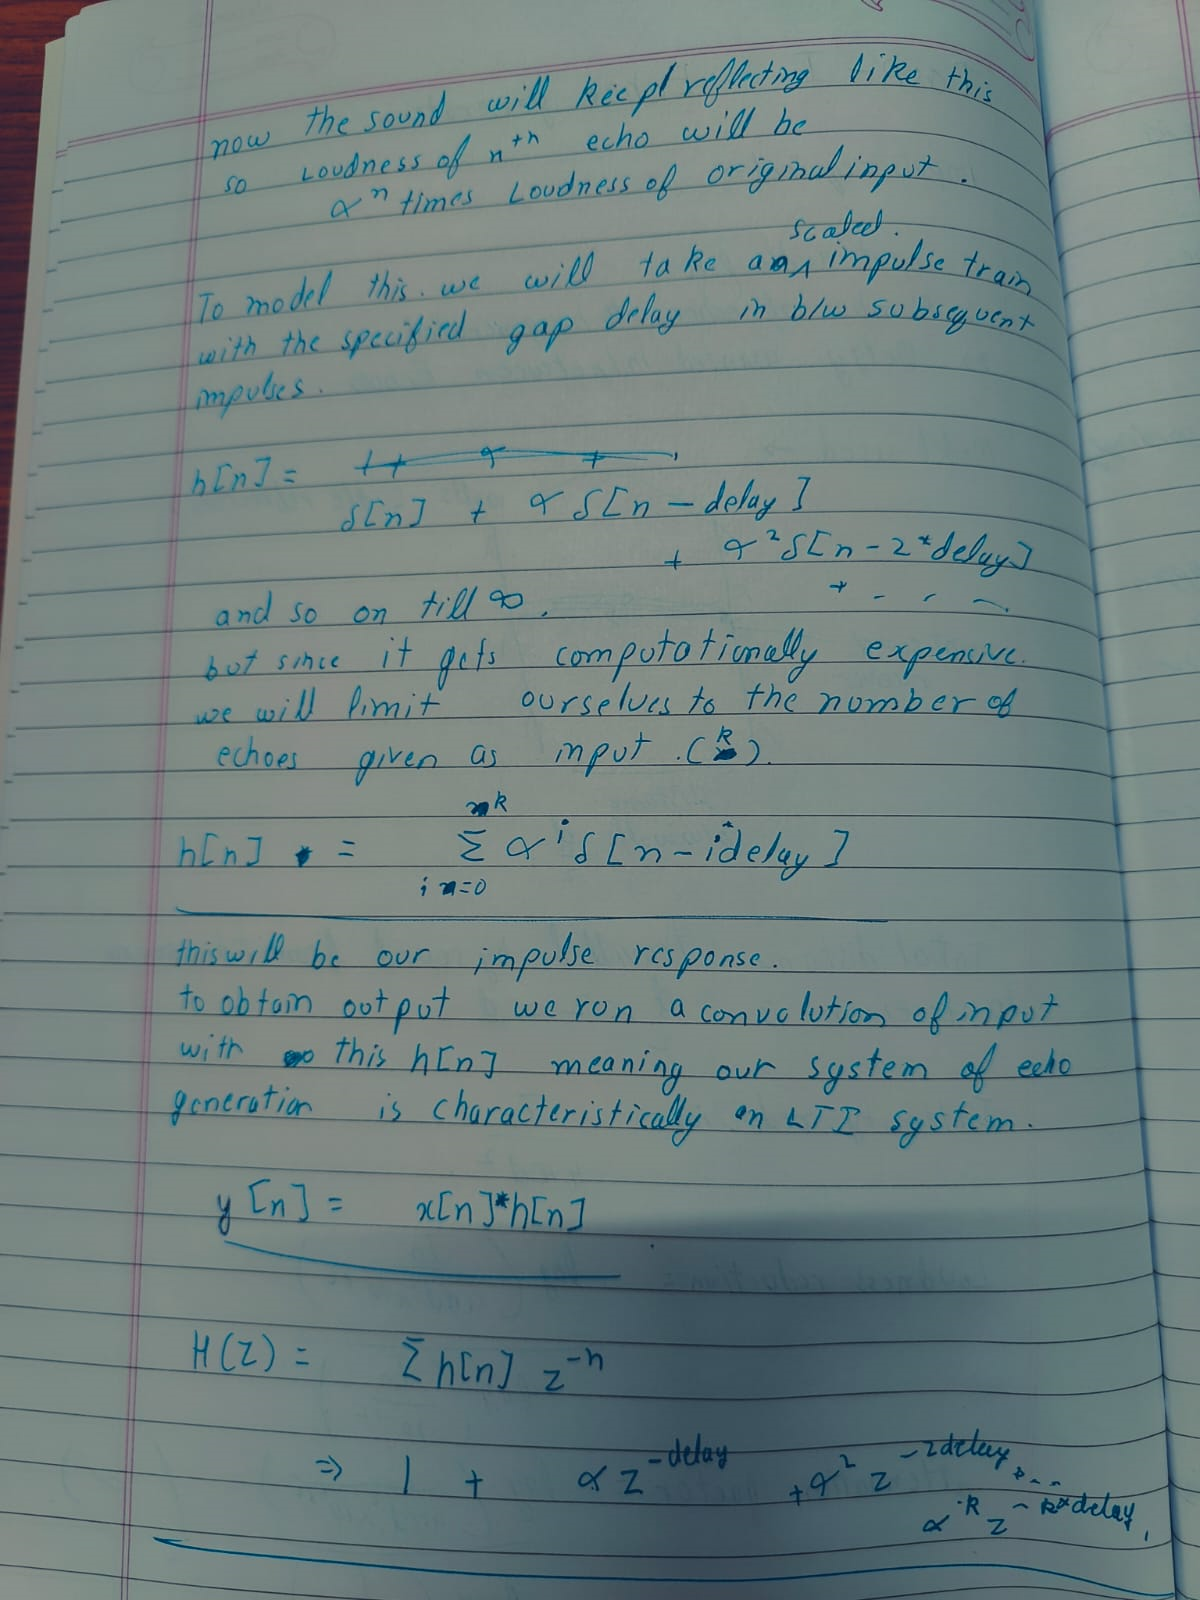 now the sound will keep reflecting like this
so Loudness of n^th echo will be
α^n times Loudness of original input.
scaled.
To model this we will take an impulse train
with the specified gap delay in b/w subsequent
impulses.
h[n] =
δ[n] + α δ[n - delay]
+ α^2 δ[n - 2*delay]
and so on till ∞. + - - -
but since it gets computationally expencive.
we will limit ourselves to the number of
echoes given as input. (k).
k
h[n] = Σ α^i δ[n - i*delay]
i=0
this will be our impulse response.
to obtain output we run a convolution of input
with this h[n] meaning our system of echo
generation is characteristically an LTI system.
y[n] = x[n]*h[n]
H(z) = Σ h[n] z^-n
⇒ 1 + α z^-delay + α^2 z^-2delay + - - -
α^k z^-k*delay.